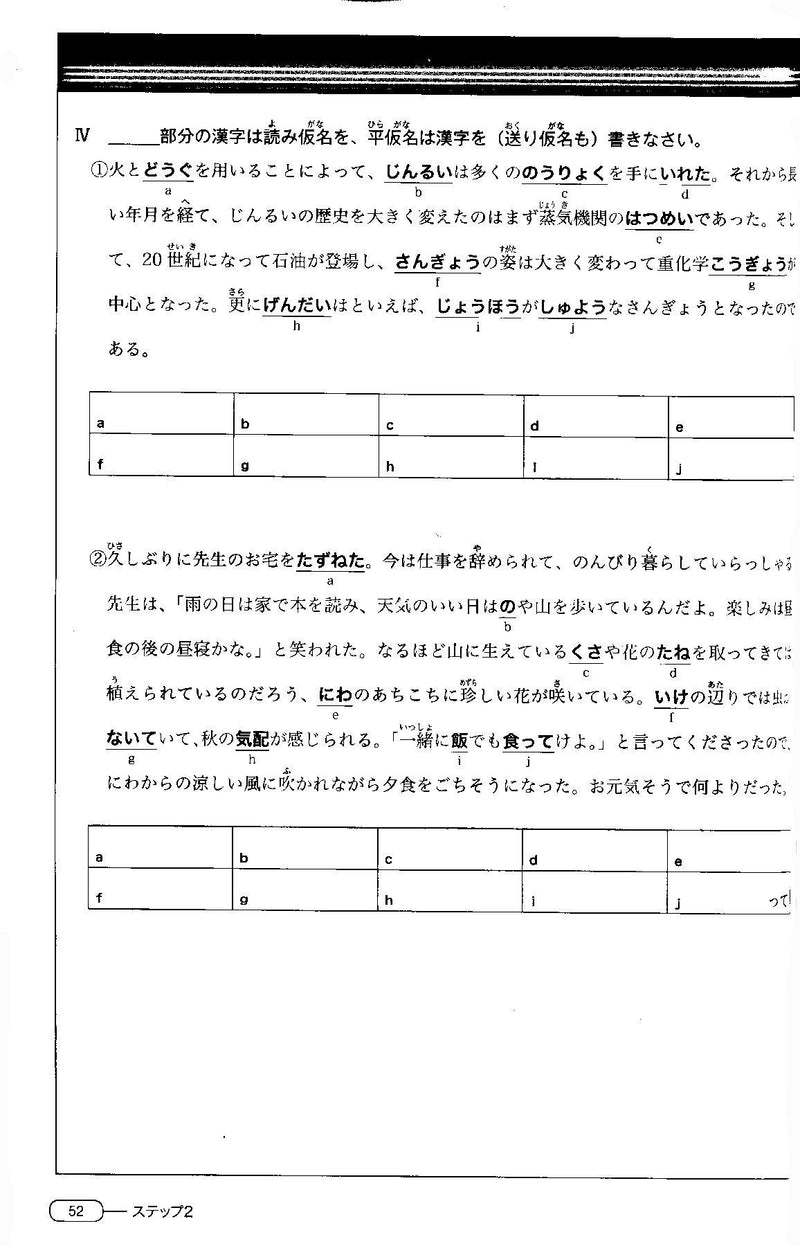 Ⅳ ＿＿＿部分の漢字は読み仮名を、平仮名は漢字を（送り仮名も）書きなさい。
①火とどうぐを用いることによって、じんるいは多くののうりょくを手にいれた。それから長
a b c d
い年月を経て、じんるいの歴史を大きく変えたのはまず蒸気機関のはつめいであった。そし
e
て、20世紀になって石油が登場し、さんぎょうの姿は大きく変わって重化学こうぎょうが
f g
中心となった。更にげんだいはといえば、じょうほうがしゅようなさんぎょうとなったので
h i j
ある。
a b c d e
f g h i j
②久しぶりに先生のお宅をたずねた。今は仕事を辞められて、のんびり暮らしていらっしゃる
a
先生は、「雨の日は家で本を読み、天気のいい日はのや山を歩いているんだよ。楽しみは昼
b
食の後の昼寝かな。」と笑われた。なるほど山に生えているくさや花のたねを取ってきては
c d
植えられているのだろう、にわのあちこちに珍しい花が咲いている。いけの辺りでは虫が
e f
ないていて、秋の気配が感じられる。「一緒に飯でも食ってけよ。」と言ってくださったので、
g h i j
にわからの涼しい風に吹かれながら夕食をごちそうになった。お元気そうで何よりだった。
a b c d e
f g h i j って
52 ステップ2